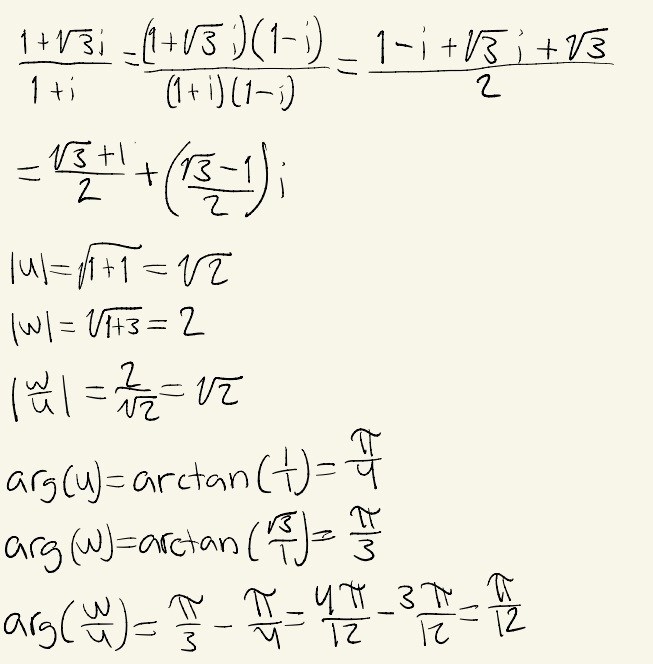 \frac{1+\sqrt{3}i}{1+i} = \frac{(1+\sqrt{3}i)(1-i)}{(1+i)(1-i)} = \frac{1-i+\sqrt{3}i+\sqrt{3}}{2}
= \frac{\sqrt{3}+1}{2} + \left(\frac{\sqrt{3}-1}{2}\right)i
|u| = \sqrt{1+1} = \sqrt{2}
|w| = \sqrt{1+3} = 2
\left|\frac{w}{u}\right| = \frac{2}{\sqrt{2}} = \sqrt{2}
arg(u) = arctan(\frac{1}{1}) = \frac{\pi}{4}
arg(w) = arctan(\frac{\sqrt{3}}{1}) = \frac{\pi}{3}
arg(\frac{w}{u}) = \frac{\pi}{3} - \frac{\pi}{4} = \frac{4\pi}{12} - \frac{3\pi}{12} = \frac{\pi}{12}